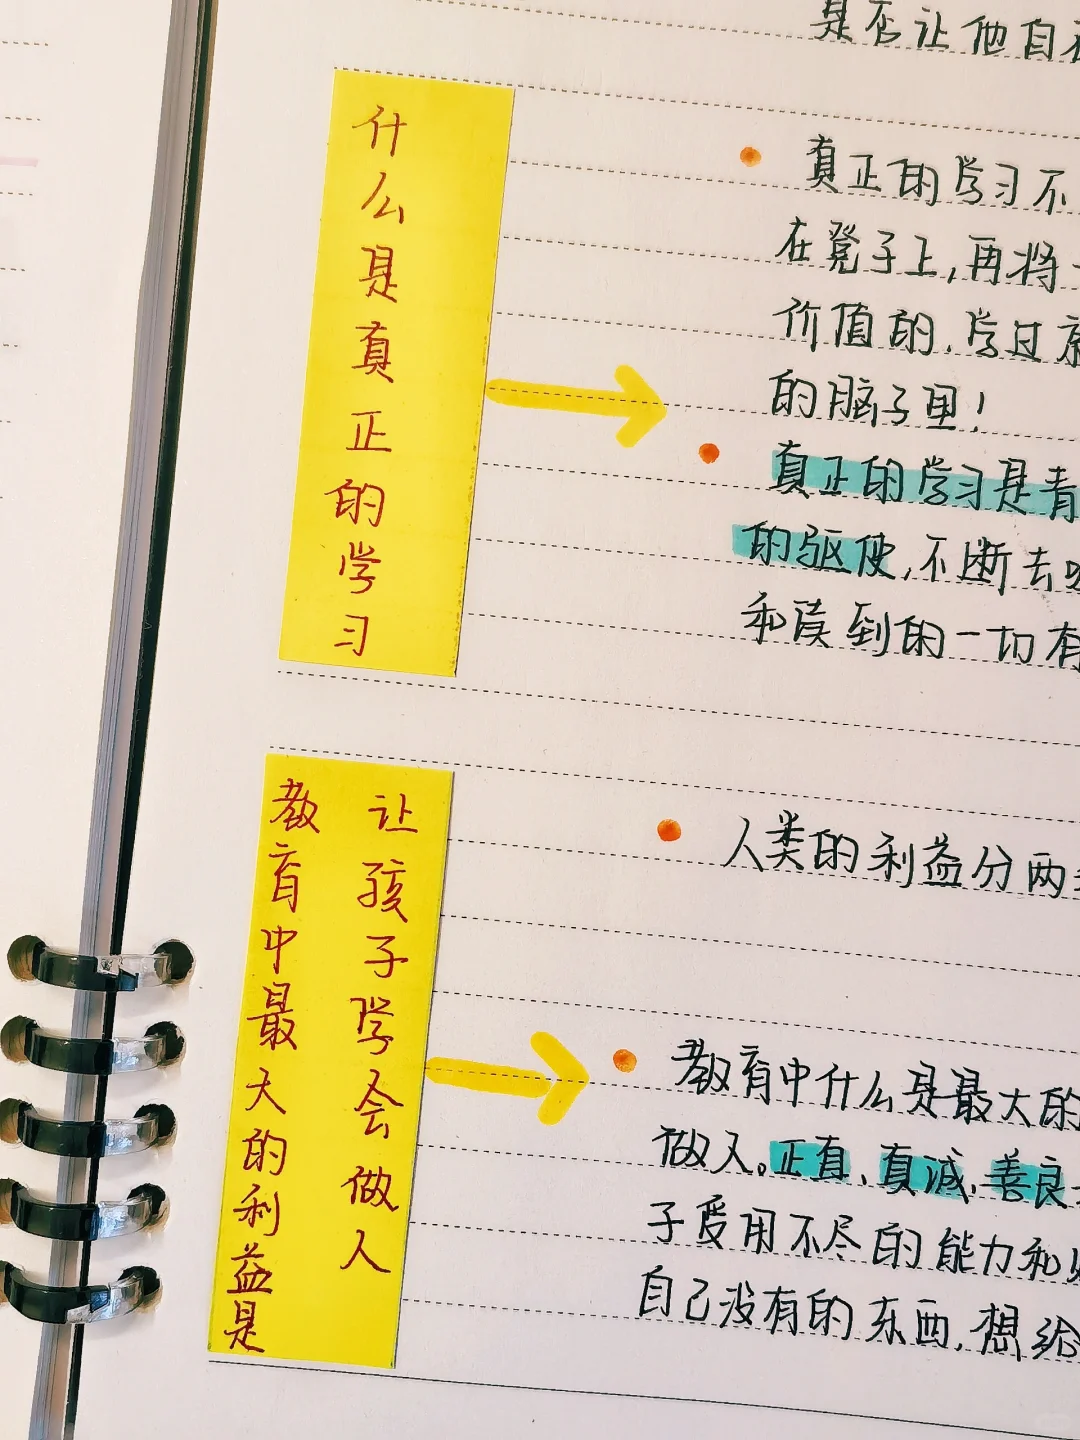 是否让他自
什么是真正的学习
真正的学习不
在凳子上,再将
价值的,学过
的脑子里!
真正的学习是
的驱使,不断去
和读到的一切有
教育中最大的利益是
让孩子学会做人
人类的利益分两
教育中什么是最大的
做人。正直、真诚、善良
子受用不尽的能力和
自己没有的东西,想给